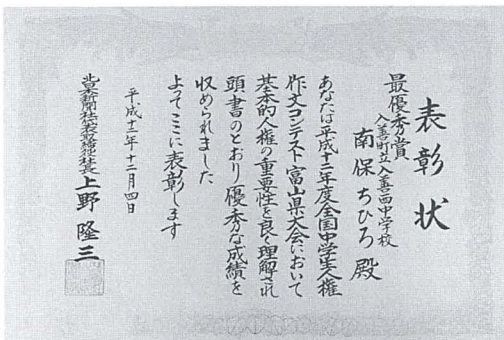 表彰状
最優秀賞
入善町立入善西中学校
南保ちひろ殿
あなたは平成十二年度全国中学生人権
作文コンテスト富山県大会において
基本的人権の重要性を良く理解され
頭書のとおり優秀な成績を
収められました
よってここに表彰します
平成十二年十二月四日
北日本新聞社代表取締役社長上野隆三